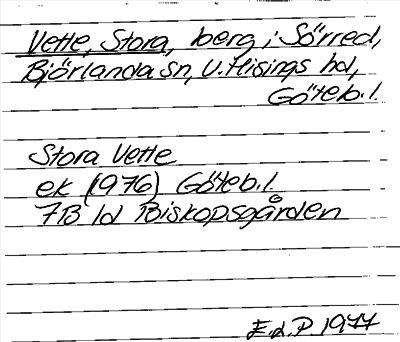 Vette, Stora, berg i Sörred,
Björlanda sn, V. Hisings hd,
Göteb. l.
Stora Vette
ek (1976) Göteb. l.
7B 1d Biskopsgården
E.d.P 1977